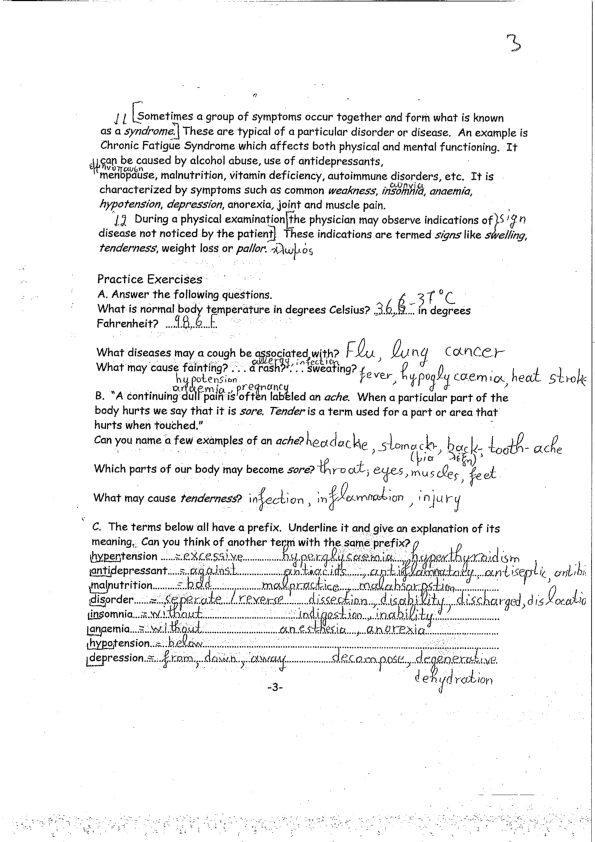 3
11 [Sometimes a group of symptoms occur together and form what is known
as a syndrome.] These are typical of a particular disorder or disease. An example is
Chronic Fatigue Syndrome which affects both physical and mental functioning. It
can be caused by alcohol abuse, use of antidepressants,
menopause, malnutrition, vitamin deficiency, autoimmune disorders, etc. It is
αϋπνία
characterized by symptoms such as common weakness, insomnia, anaemia,
hypotension, depression, anorexia, joint and muscle pain.
12 During a physical examination [the physician may observe indications of } sign
disease not noticed by the patient]. These indications are termed signs like swelling,
tenderness, weight loss or pallor. χλωμός
Practice Exercises
A. Answer the following questions.
What is normal body temperature in degrees Celsius? 36,6 - 37°C in degrees
Fahrenheit? 98,6 F
What diseases may a cough be associated with? Flu, lung cancer
allergy, infection
What may cause fainting? ... a rash? ... sweating? fever, hypoglycaemia, heat stroke
hypotension
anaemia, pregnancy
B. "A continuing dull pain is often labeled an ache. When a particular part of the
body hurts we say that it is sore. Tender is a term used for a part or area that
hurts when touched."
Can you name a few examples of an ache? headache, stomach-, back-, tooth-ache
Which parts of our body may become sore? throat, eyes, muscles, feet
What may cause tenderness? infection, inflamnation, injury
C. The terms below all have a prefix. Underline it and give an explanation of its
meaning. Can you think of another term with the same prefix?
hypertension = excessive hyperglycaemia hyperthyroidism
antidepressant = against antiacids, antiflammatory, antiseptic, antibi
malnutrition = bad malpractice, malabsorpstion
disorder = seperate / reverse dissection, disability, discharged, dislocatio
insomnia = without indigestion, inability
anaemia = without anesthesia, anorexia
hypotension = below
depression = from, down, away decompose, degenerative
dehydration
-3-